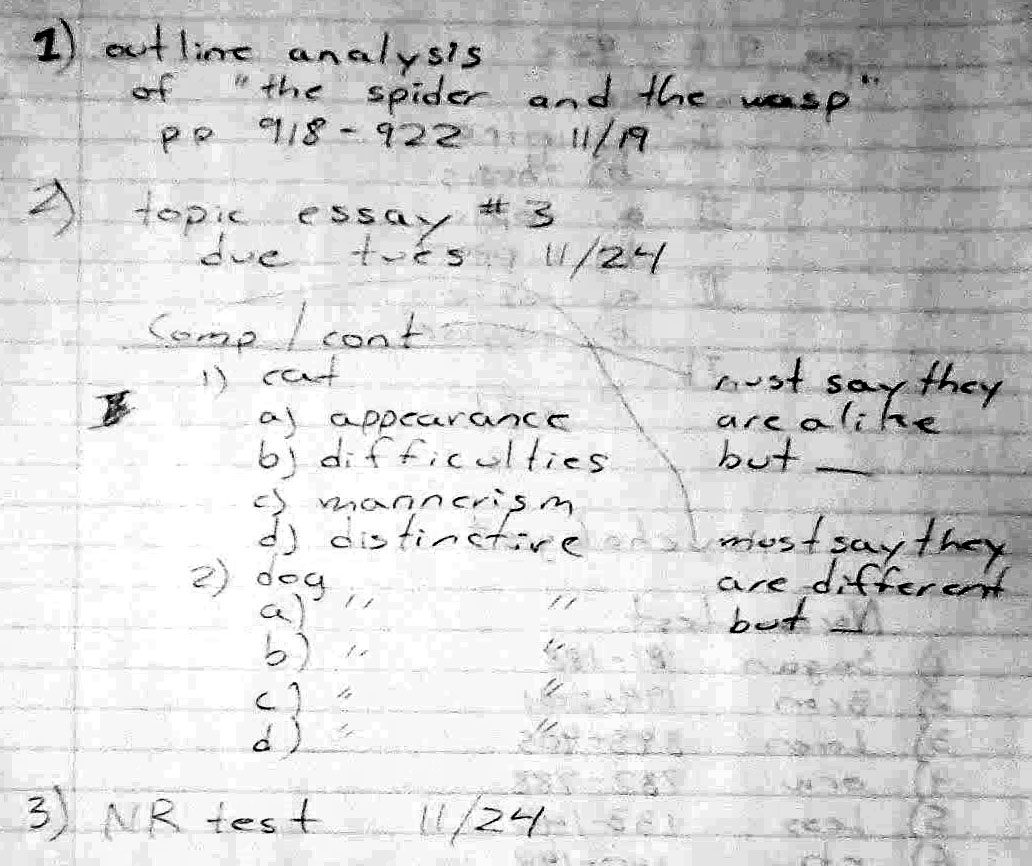 1) outline analysis
of "the spider and the wasp"
pp 918-922 11/19
2) topic essay #3
due tues 11/24
Comp/cont
1) cat
a) appearance
b) difficulties
c) mannerism
d) distinctive
must say they
are alike
but __
2) dog
a) " "
b) " "
c) " "
d) " "
must say they
are different
but __
3) NR test 11/24